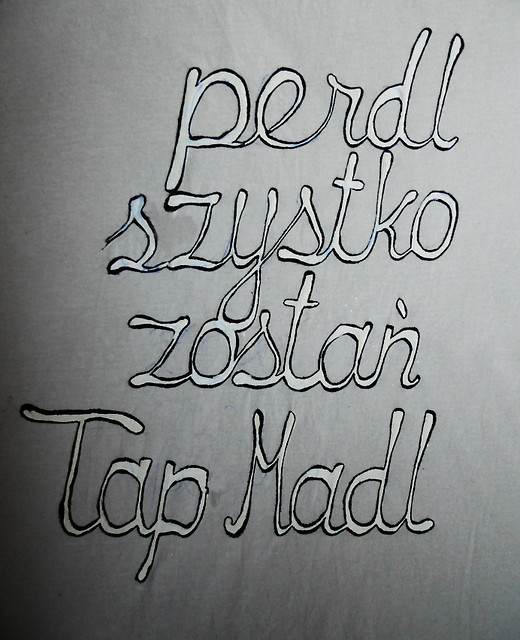 perdl
szystko
zostań
Tap Madl